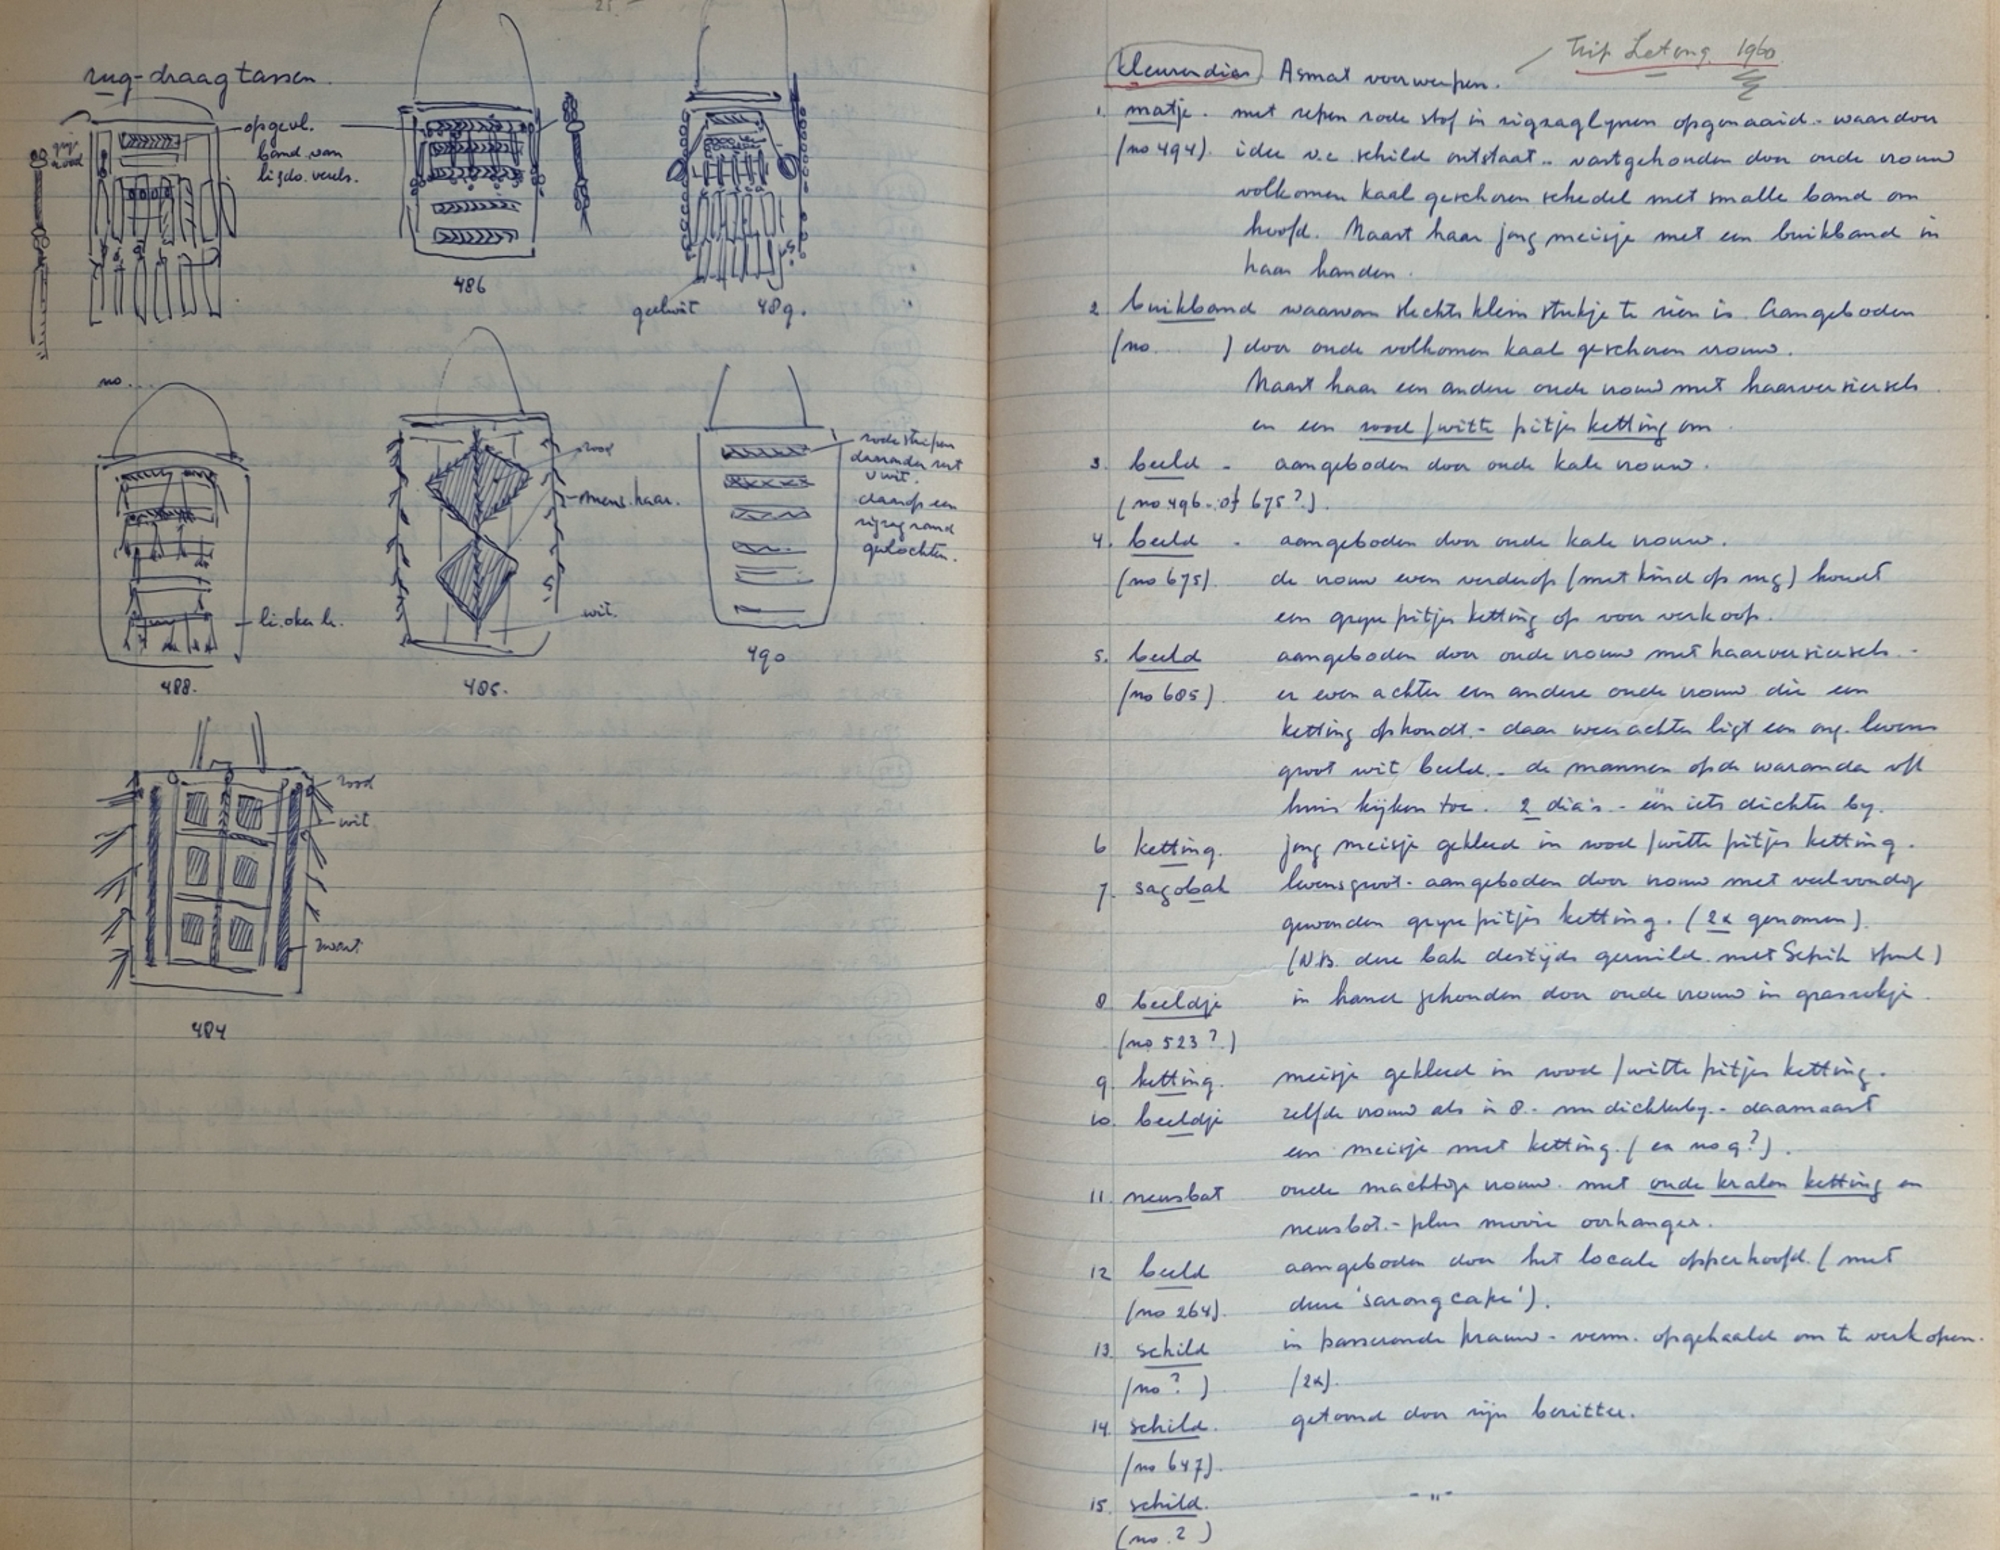 25.
rug-draagtassen.
opgevl.
band van
lisdo. verls.
rood
486
489.
geelwit
no....
rood
mens. haar.
wit.
rode stripen
daaronder rest
wit.
daarop een
zigzag rand
gevlochten.
li. oker kl.
488.
485.
490
rood
wit
zwart
484
Trip Letong 1960
kleurendias Asmat voorwerpen.
1. matje. met repen rode stof in zigzaglijnen opgenaaid - waardoor
(no 494). idee v.e schild ontstaat - vastgehouden door oude vrouw
volkomen kaal geschoren schedel met smalle band om
hoofd. Naast haar jong meisje met een buikband in
haar handen.
2 buikband waarvan slechts klein stukje te zien is. Aangeboden
(no. ) door oude volkomen kaal geschoren vrouw.
Naast haar een andere oude vrouw met haarversiersels
en een rood/witte pitjes ketting om.
3. beeld - aangeboden door oude kale vrouw.
(no 496 - of 675?).
4. beeld - aangeboden door oude kale vrouw.
(no 675). de vrouw even verderop (met kind op rug) houdt
een grijze pitjes ketting op voor verkoop.
5. beeld aangeboden door oude vrouw met haarversiersels. -
(no 685). er even achter een andere oude vrouw die een
ketting ophoudt. - daar weer achter ligt een ong. levens
groot wit beeld. - de mannen op de waranda v/h
huis kijken toe. 2 dia's - één iets dichter by.
6 ketting. jong meisje gekleed in rood/witte pitjes ketting.
7. sagobak levensgroot - aangeboden door vrouw met veelvoudig
gewonden grijze pitjes ketting. (2x genomen).
(N.B. deze bak destijds geruild met Sepik spul)
8 beeldje in hand gehouden door oude vrouw in grasrokje.
(no 523?)
9. ketting. meisje gekleed in rood/witte pitjes ketting.
10. beeldje zelfde vrouw als in 8 - nu dichterby. - daarnaast
een meisje met ketting. (ex no 9?).
11. neusbot oude machtige vrouw met oude kralen ketting en
neusbot. - plus mooie oorhanger.
12 beeld aangeboden door het locale opperhoofd. (met
(no 264). deze 'sarongcape').
13. schild in passerende prauw - verm. opgehaald om te verkopen.
(no ? ) (2x).
14. schild. getoond door zijn bezitter.
(no 647).
15. schild. - " -
(no. ? )